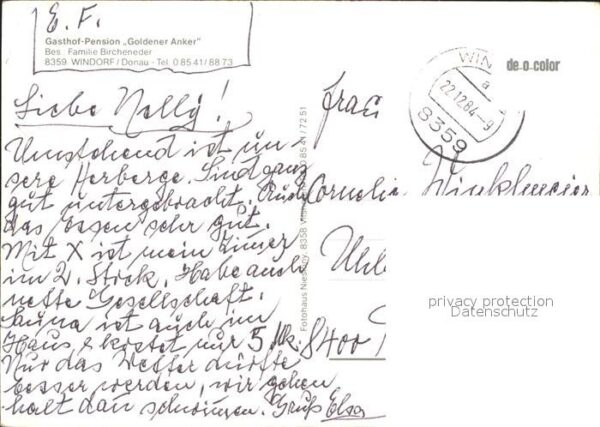 E. F.
Gasthof-Pension „Goldener Anker"
Bes. Familie Bircheneder
8359 WINDORF / Donau - Tel. 0 85 41 / 88 73
Liebe Nelly!
Umstehend ist un-
sere Herberge. Sind ganz
gut untergebracht. Auch
das Essen sehr gut.
Mit X ist mein Zimmer
im 2. Stock. Habe auch
nette Gesellschaft.
Sauna ist auch im
Haus, & kostet nur 5 Mk.
Nur das Wetter dürfte
besser werden, wir gehen
halt dan schwingen. Gruß Elsa
Fotohaus 8358 0 85 41 / 72 51
WIN
a
22.12.84-9
8359
de-o-color
Frau
Cornelia Winklmeier
Uhl
8400
privacy protection
Datenschutz